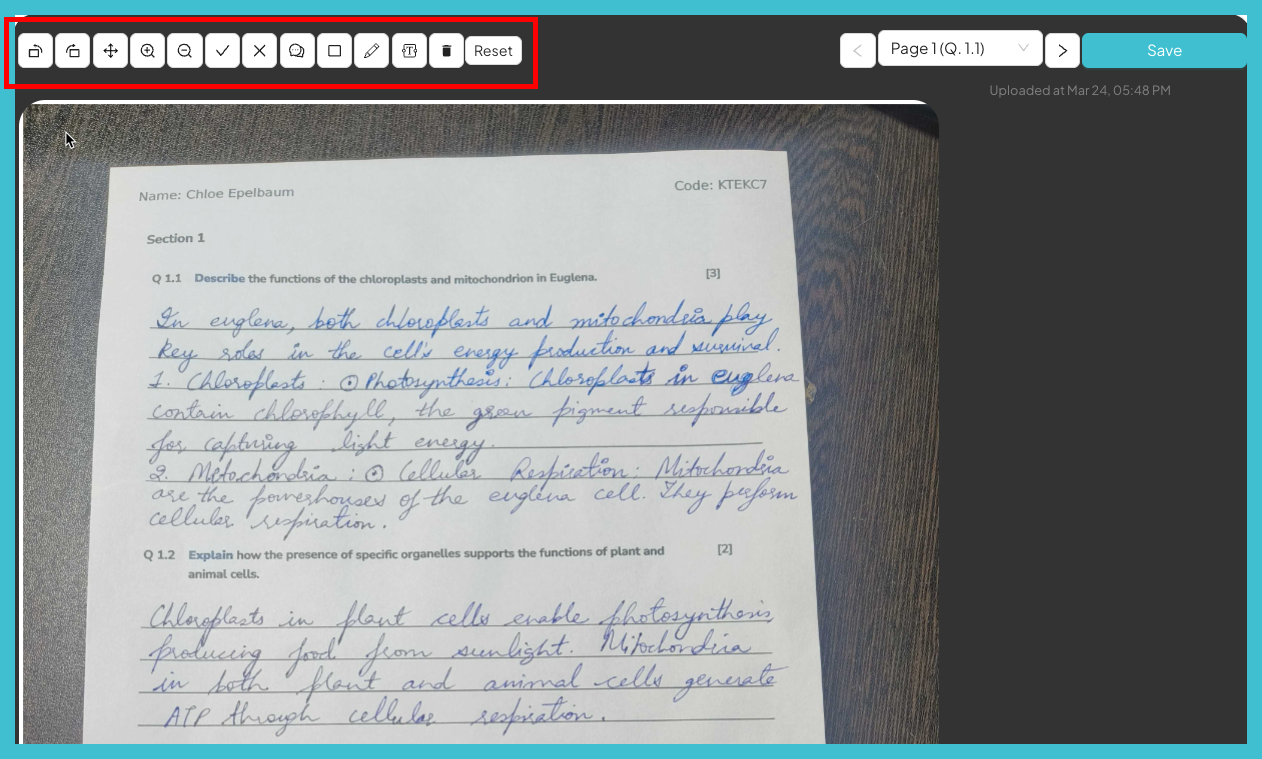 Reset
Page 1 (Q. 1.1)
Save
Uploaded at Mar 24, 05:48 PM
Name: Chloe Epelbaum
Code: KTEKC7
Section 1
Q 1.1 Describe the functions of the chloroplasts and mitochondrion in Euglena. [3]
In euglena, both chloroplasts and mitochondria play
key roles in the cell's energy production and survival.
1. Chloroplasts : ⊙ Photosynthesis : Chloroplasts in euglena
contain chlorophyll, the green pigment responsible
for capturing light energy.
2. Mitochondria : ⊙ Cellular Respiration : Mitochondria
are the powerhouses of the euglena cell. They perform
cellular respiration.
Q 1.2 Explain how the presence of specific organelles supports the functions of plant and [2]
animal cells.
Chloroplasts in plant cells enable photosynthesis,
producing food from sunlight. Mitochondria
in both plant and animal cells generate
ATP through cellular respiration.